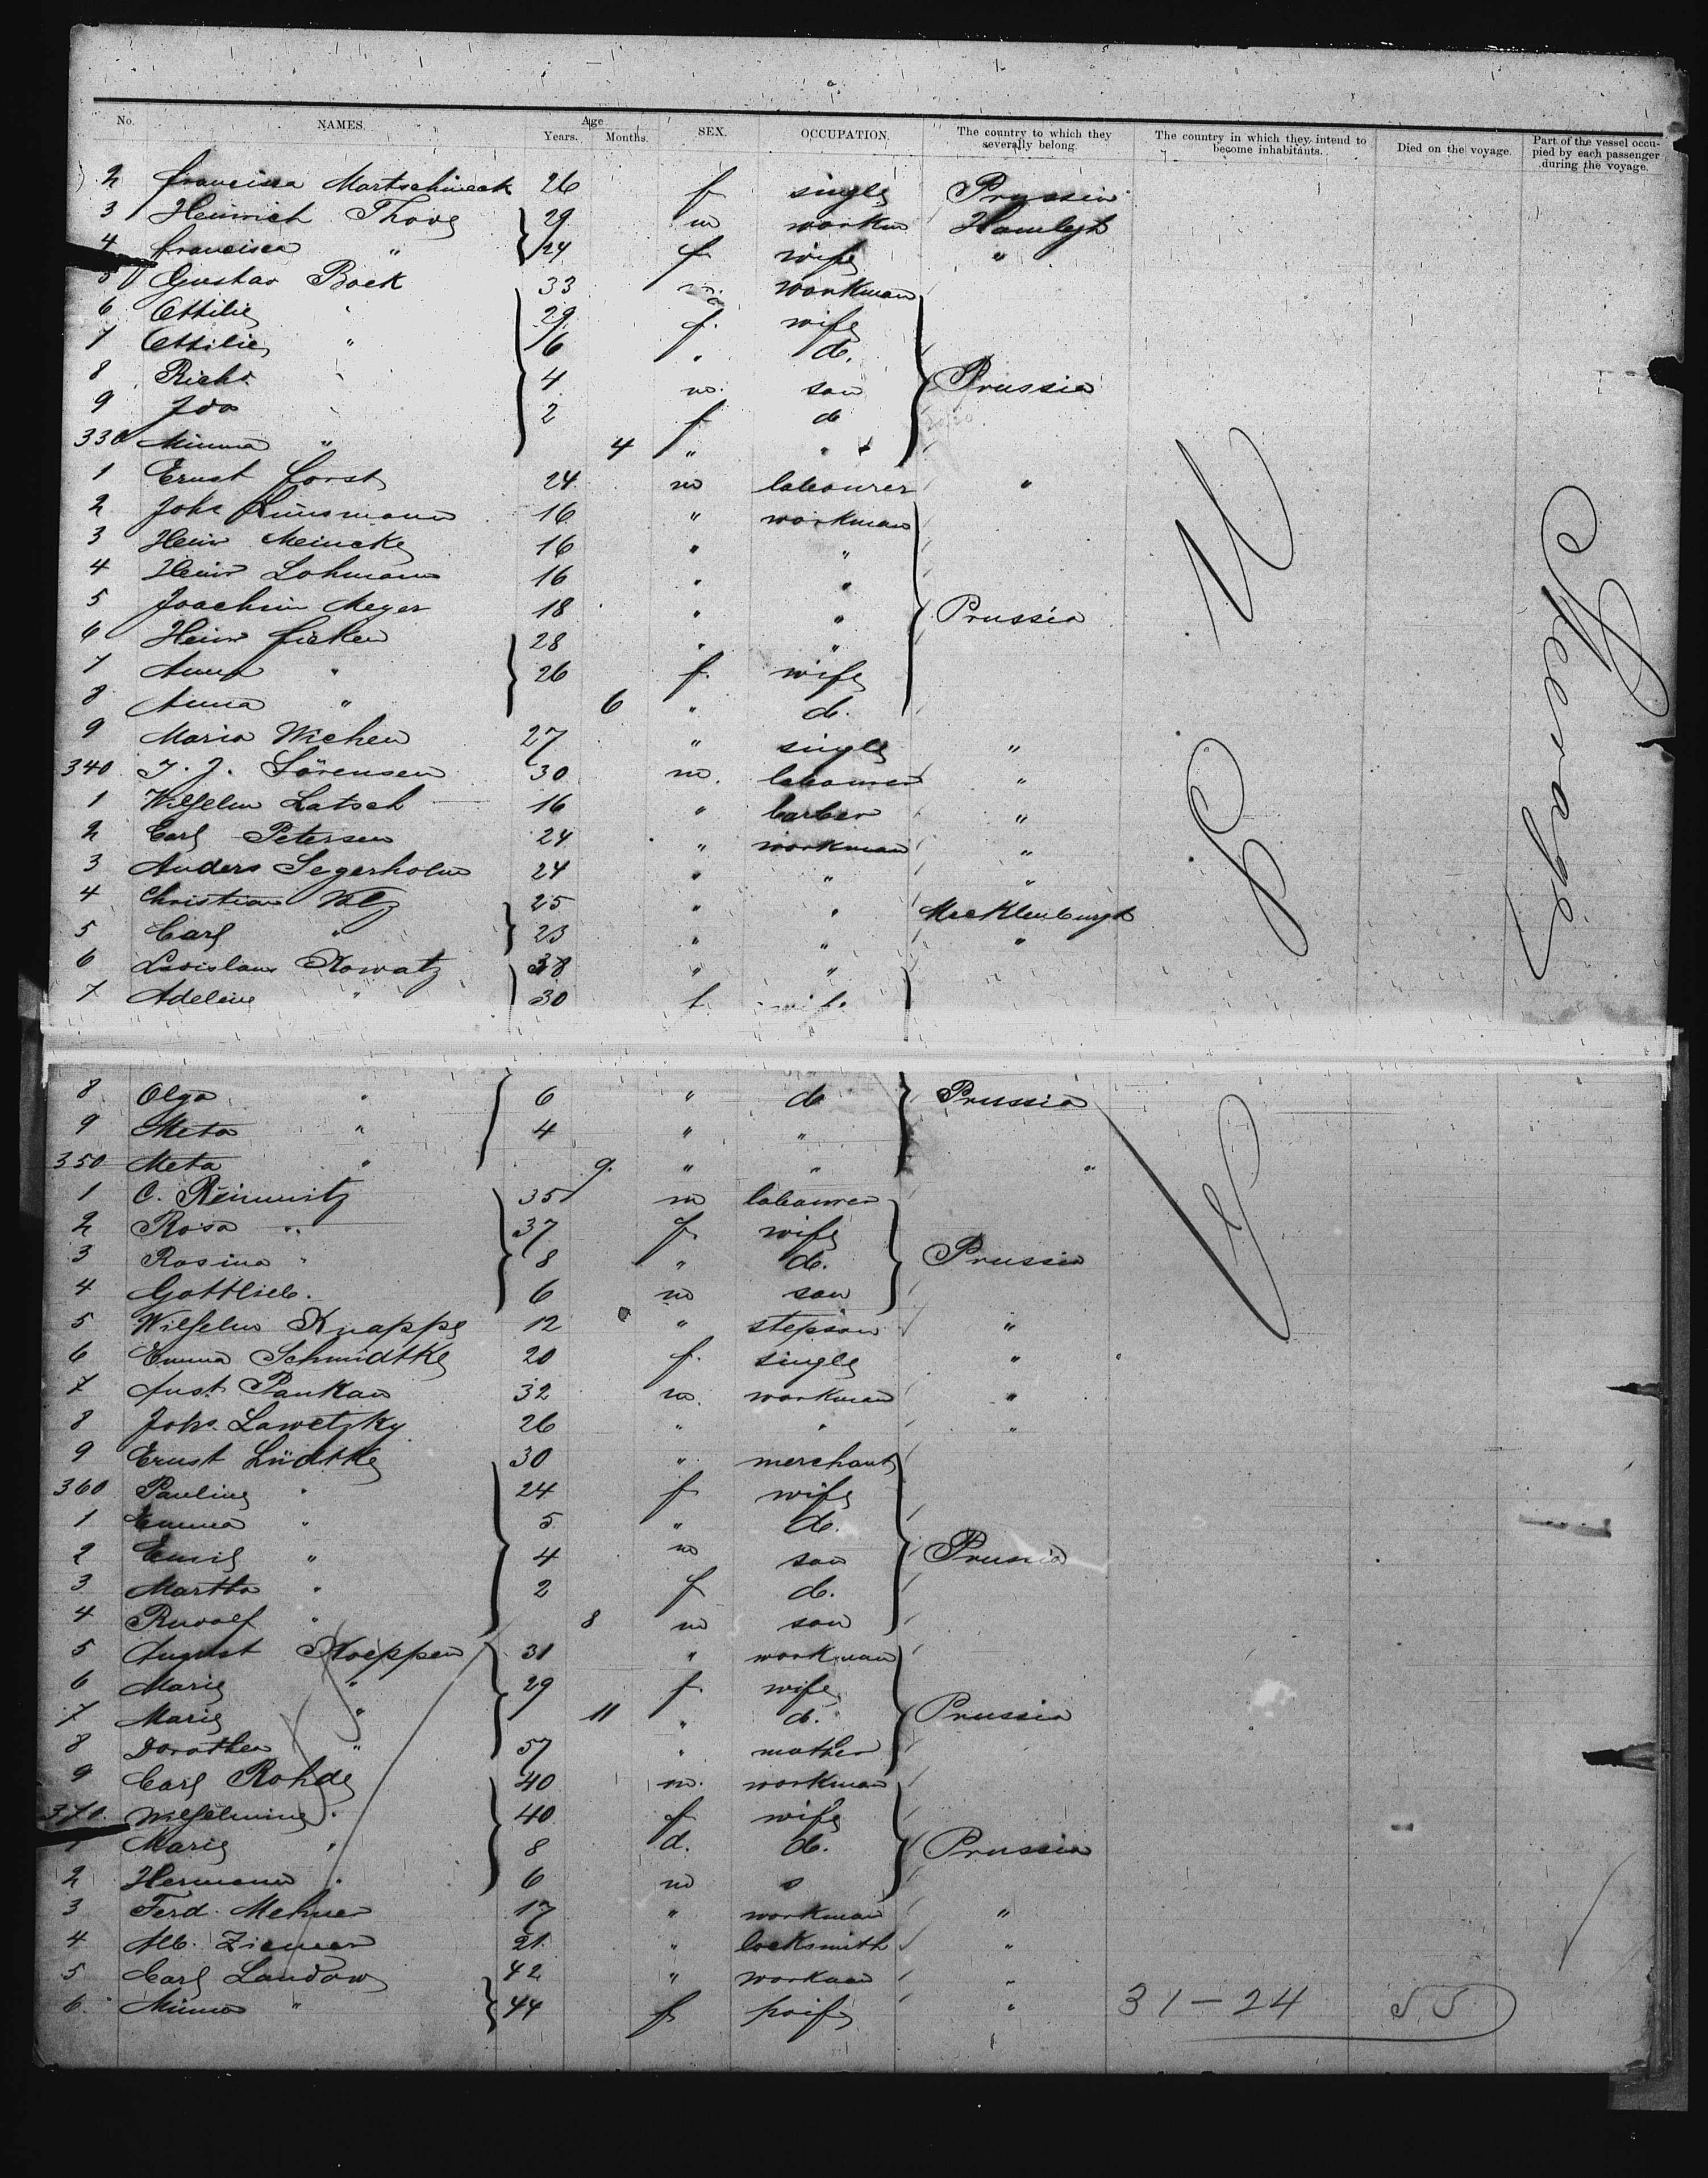 No. NAMES. Age Years. Months. SEX. OCCUPATION. The country to which they severally belong. The country in which they intend to become inhabitants. Died on the voyage. Part of the vessel occupied by each passenger during the voyage.
2 Francisca Martschineck 26 f single Prussia
3 Heinrich Thove 29 m workm
4 Francisca " 24 f wife "
5 Gustav Bock 33 m. workman
6 Ottilie " 29 f. wife
7 Ottilie " 6 " d.
8 Richd. " 4 m. son Prussia
9 Ida 2 f d
330 Minna " 4 " "
1 Ernst Forst 24 m labourer "
2 Johs 16 " workman
3 Heinr Meincke 16 " "
4 Heinr Lohmann 16 " "
5 Joachim Meyer 18 " " Prussia
6 Heinr Ficken 28 " "
7 Anna " 26 f. wife
8 Anna " 6 " d.
9 Maria Wichen 27 " single "
340 J. J. Sörensen 30 m. labourer "
1 Wilhelm Latsch 16 " barber "
2 Carl Petersen 24 " workman "
3 Anders Segerholm 24 " " "
4 Christian 25 " " Mecklenburgh
5 Carl " 23 " " "
6 Ladislaus Kowatz 38 " "
7 Adeline " 30 f. wife
8 Olga " 6 " d Prussia
9 Meta " 4 " "
350 Meta " 9. " " "
1 C. Reimnitz 35 m labourer
2 Rosa " 37 f. wife
3 Rosina " 8 " d. Prussia
4 Gottlieb. 6 m son
5 Wilhelm Knappe 12 " stepson "
6 Emma Schmidtke 20 f. single "
7 Aust. Pankau 32 m. workman "
8 Johs. Lawetzky 26 " " "
9 Ernst Lüdtke 30 " merchant
360 Pauline " 24 f wife
1 Emma " 5 " d.
2 Emil " 4 m son Prussia
3 Martha " 2 f d.
4 Rudolf " 8 m son
5 August Koeppen 31 " workman
6 Marie " 29 f. wife
7 Marie " 11 " d. Prussia
8 Dorothea " 57 " mother
9 Carl Rohde 40 m. workman
370. Wilhelmine " 40 f wife
1 Marie " 8 d. d. Prussia
2 Hermann " 6 m s
3 Ferd. Mehner 17 " workman "
4 Alb. Ziemer 21. " locksmith "
5 Carl Landow 42 " workman "
6. Minna " 44 f wife "
U S
Steerage
31-24 55